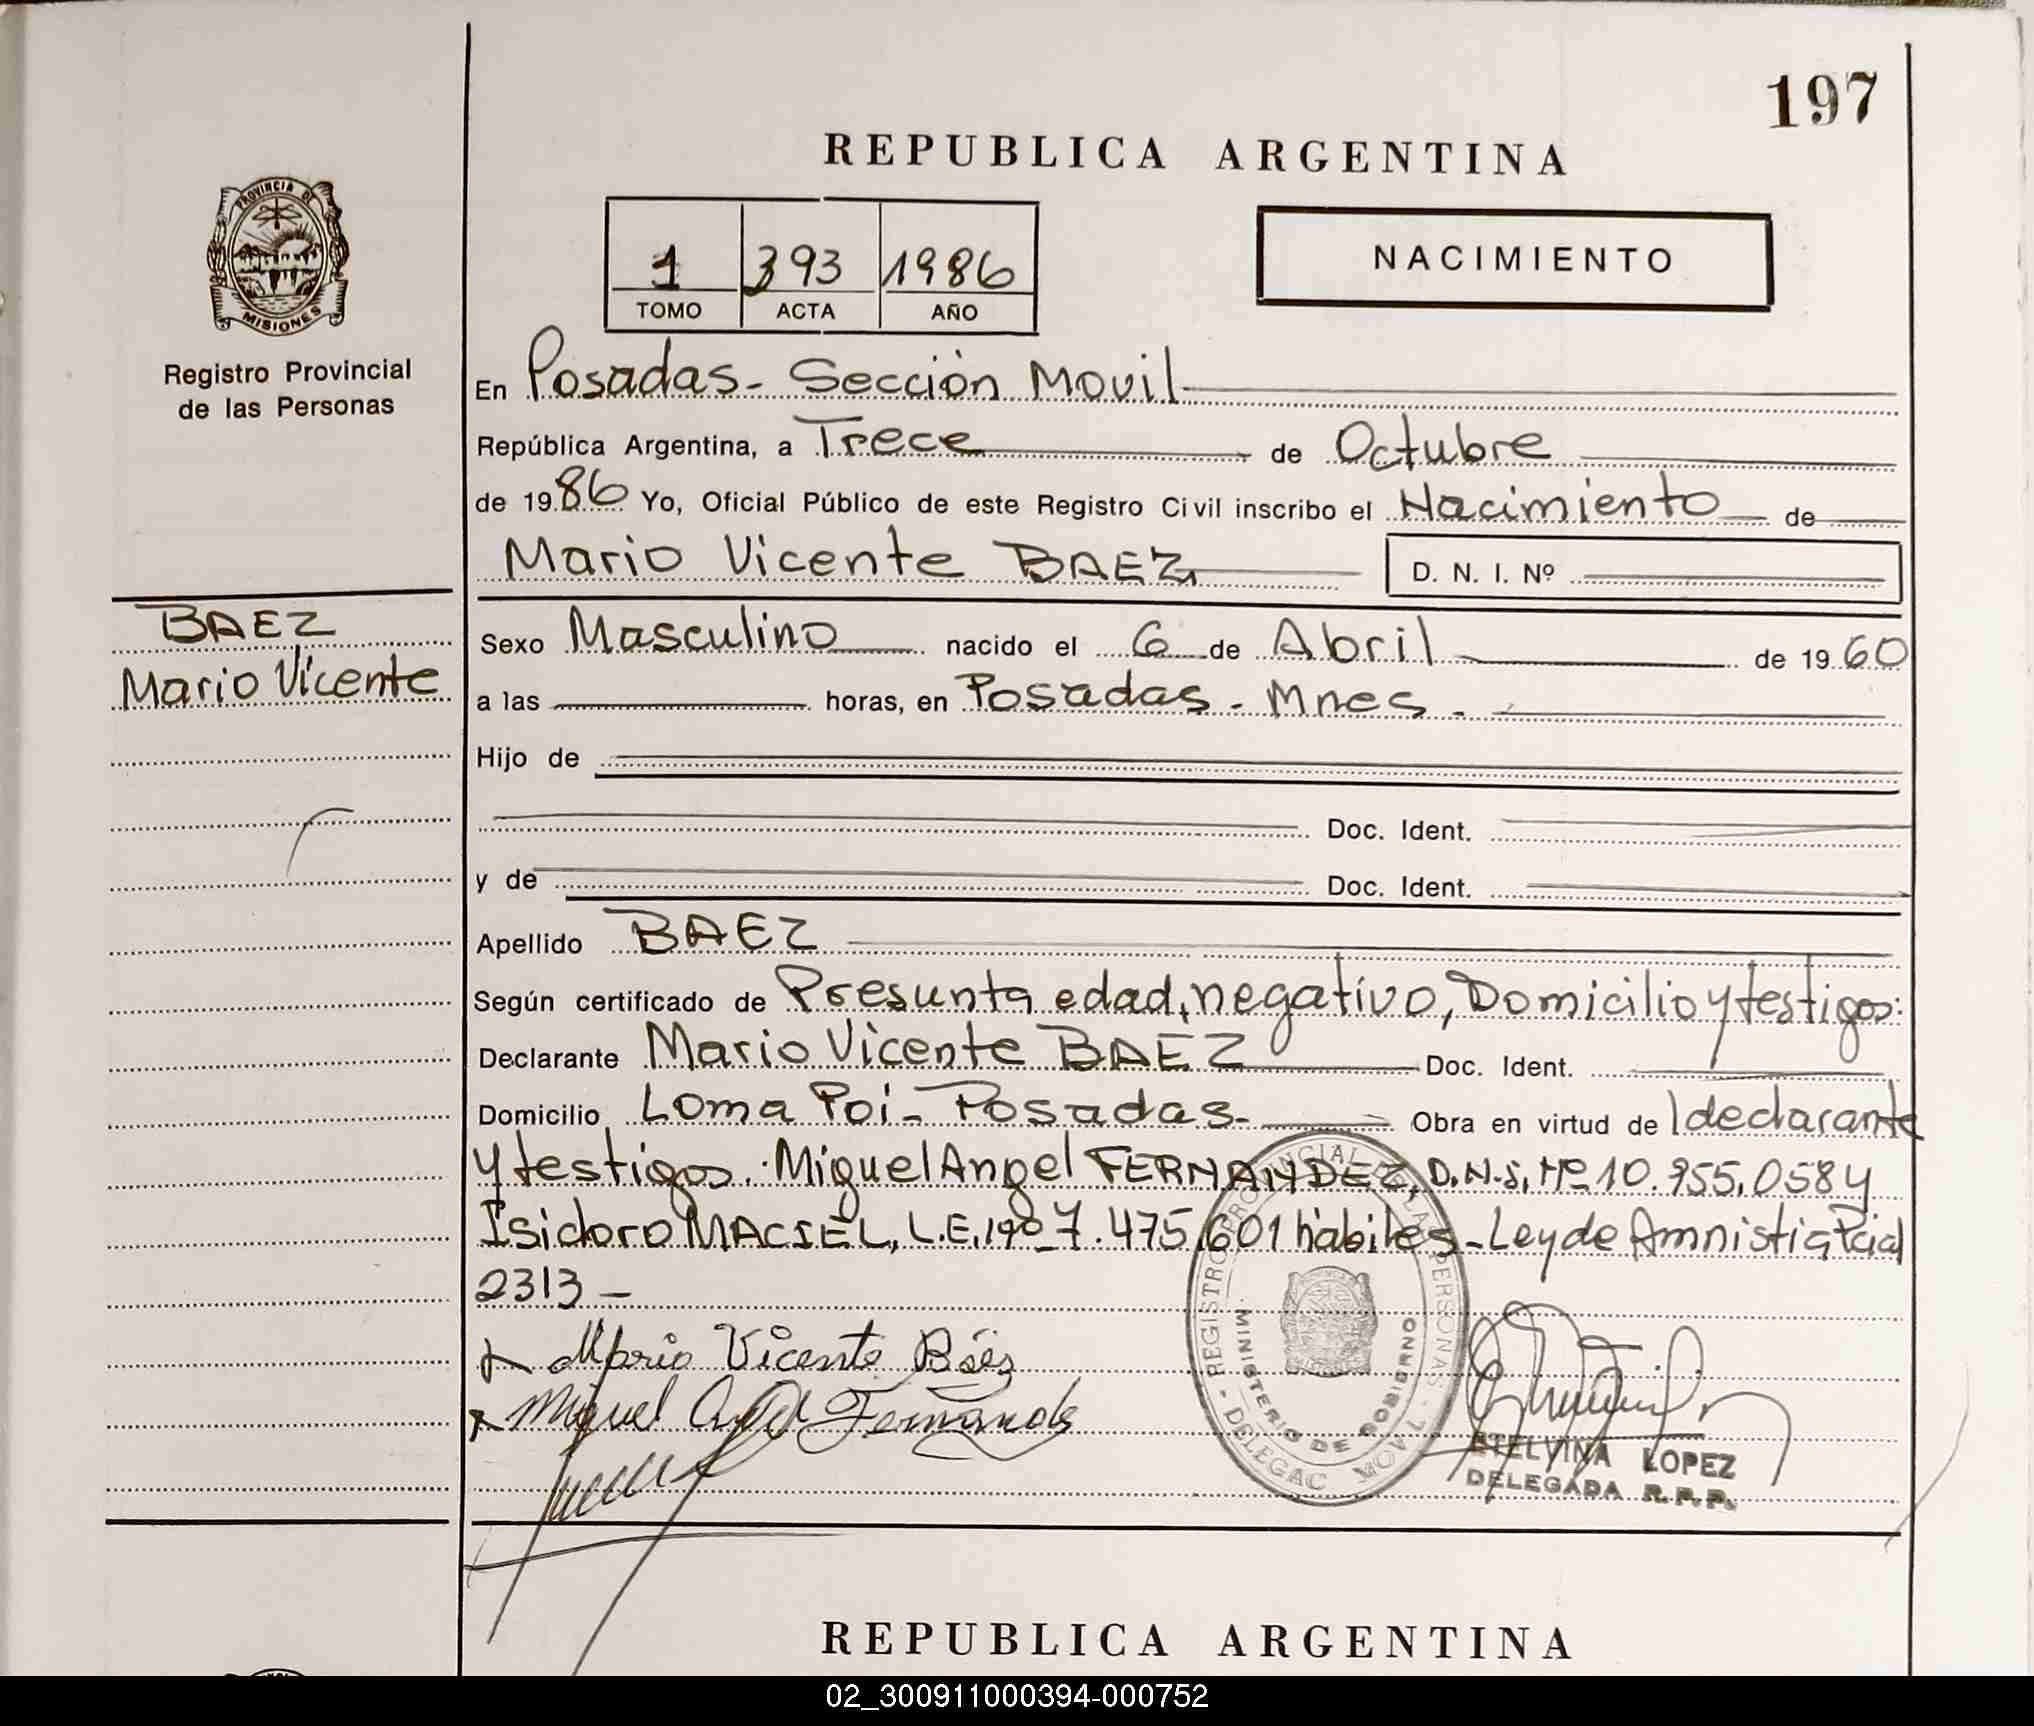 197
REPUBLICA ARGENTINA
PROVINCIA DE
MISIONES
Registro Provincial
de las Personas
1 393 1986
TOMO ACTA AÑO
NACIMIENTO
En Posadas- Sección Movil
República Argentina, a Trece de Octubre
de 1986 Yo, Oficial Público de este Registro Civil inscribo el Nacimiento de
Mario Vicente BAEZ D. N. I. Nº
BAEZ
Mario Vicente
Sexo Masculino nacido el 6 de Abril de 1960
a las horas, en Posadas - Mnes.-
Hijo de
Doc. Ident.
y de Doc. Ident.
Apellido BAEZ
Según certificado de Presunta edad, negativo, Domicilio y testigos:
Declarante Mario Vicente BAEZ Doc. Ident.
Domicilio Loma Poi- Posadas- Obra en virtud de l declarante
y testigos: Miguel Angel FERNANDEZ, D.N.I. Nº 10.955.058 y
Isidoro MACIEL, L.E. Nº 7.475.601 hábiles-Ley de Amnistia Pcial
2313 -
Mario Vicente Báez
Miguel Angel Fernandez
REGISTRO PROVINCIAL DE LAS PERSONAS - DELEGAC MOVIL -
MINISTERIO DE GOBIERNO
ETELVINA LOPEZ
DELEGADA R.P.P.
REPUBLICA ARGENTINA
02_300911000394-000752